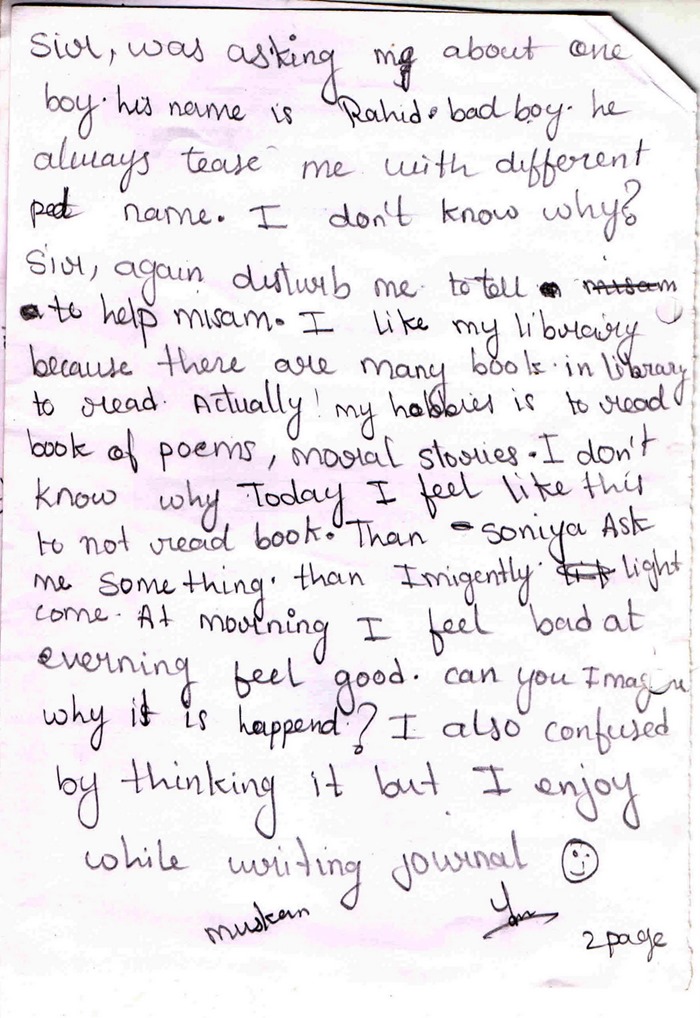 Sir, was asking me about one
boy. his name is Rahid. bad boy. he
always tease me with different
pet name. I don't know why?
Sir, again disturb me to tell
to help misam. I like my librairy
because there are many book in library
to read. Actually! my hobbies is to read
book of poems, moral stories. I don't
know why Today I feel like this
to not read book. Than soniya Ask
me Something. than Imigently light
come. At mourning I feel bad at
everning feel good. can you Imagine
why it is happend? I also confused
by thinking it but I enjoy
while writing journal
muskan
2 page